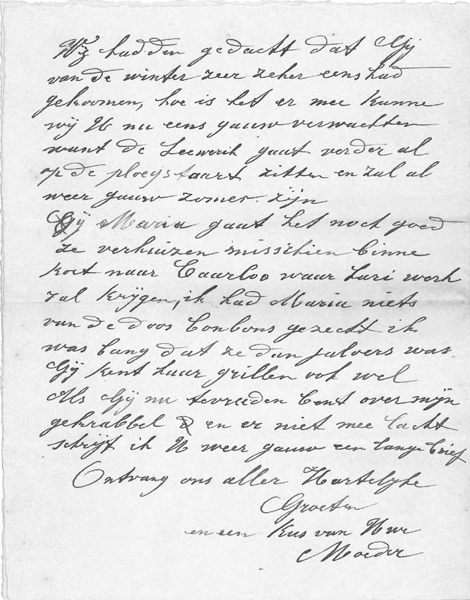 Wij hadden gedacht dat Gij
van de winter zeer zeker eens had
gekoomen, hoe is het er mee kunne
wij U nu eens gauw verwachten
want de Leewerik gaat verder al
op de ploegstaart zitten en zal al
weer gauw zomer zijn
Bij Maria gaat het noch goed
ze verhuizen misschien binne
kort naar Baarloo waar Lari werk
zal krijgen, ik had Maria niets
van de doos bonbons gezecht ik
was bang dat ze dan jaloers was
Gij kent haar grillen ook wel
Als Gij nu tevrieden bent over mijn
gekrabbel en er niet mee lacht
schrijf ik U weer gauw een lange brief
Ontvang ons aller Hartelijke
Groeten
en een Kus van Uwe
Moeder